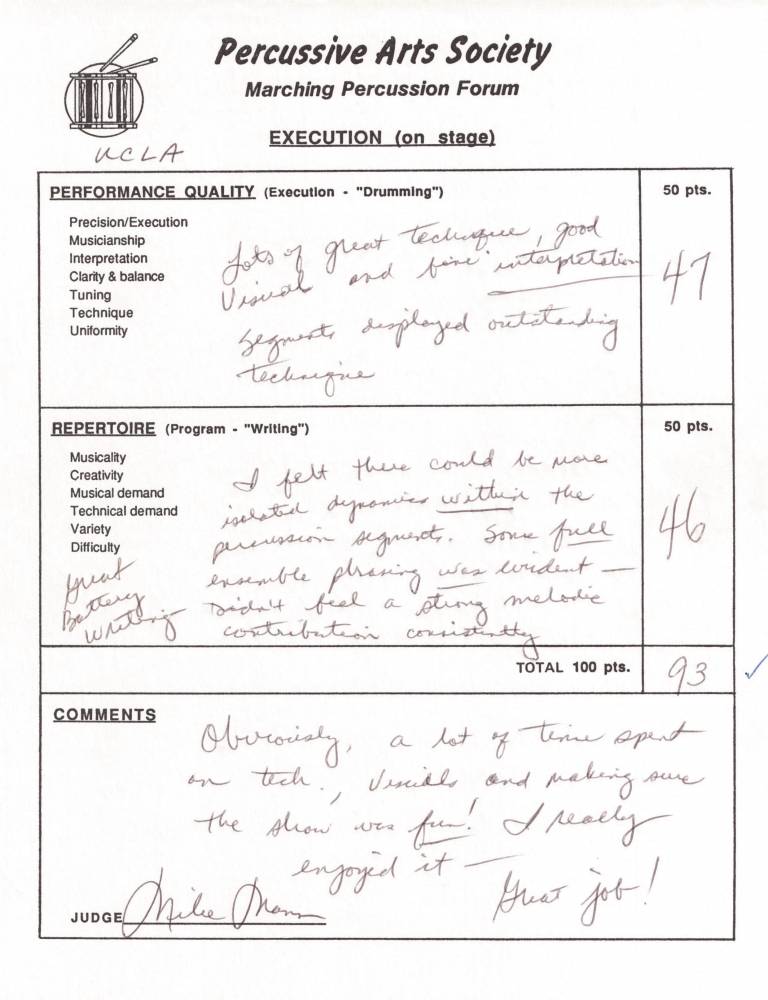 Percussive Arts Society
Marching Percussion Forum
EXECUTION (on stage)
UCLA
PERFORMANCE QUALITY (Execution - "Drumming")
50 pts.
Precision/Execution
Musicianship
Interpretation
Clarity & balance
Tuning
Technique
Uniformity
Lots of great technique, good
Visual and fine interpretation
Segments displayed outstanding
technique
47
REPERTOIRE (Program - "Writing")
50 pts.
Musicality
Creativity
Musical demand
Technical demand
Variety
Difficulty
Great
Battery
Writing
I felt there could be more
isolated dynamics within the
percussion segments. Some full
ensemble phrasing was evident —
Didn't feel a strong melodic
contribution consistently
46
TOTAL 100 pts.
93
COMMENTS
Obviously, a lot of time spent
on tech., Visuals and making sure
the show was fun! I really
enjoyed it —
Great job!
JUDGE Mike Mann